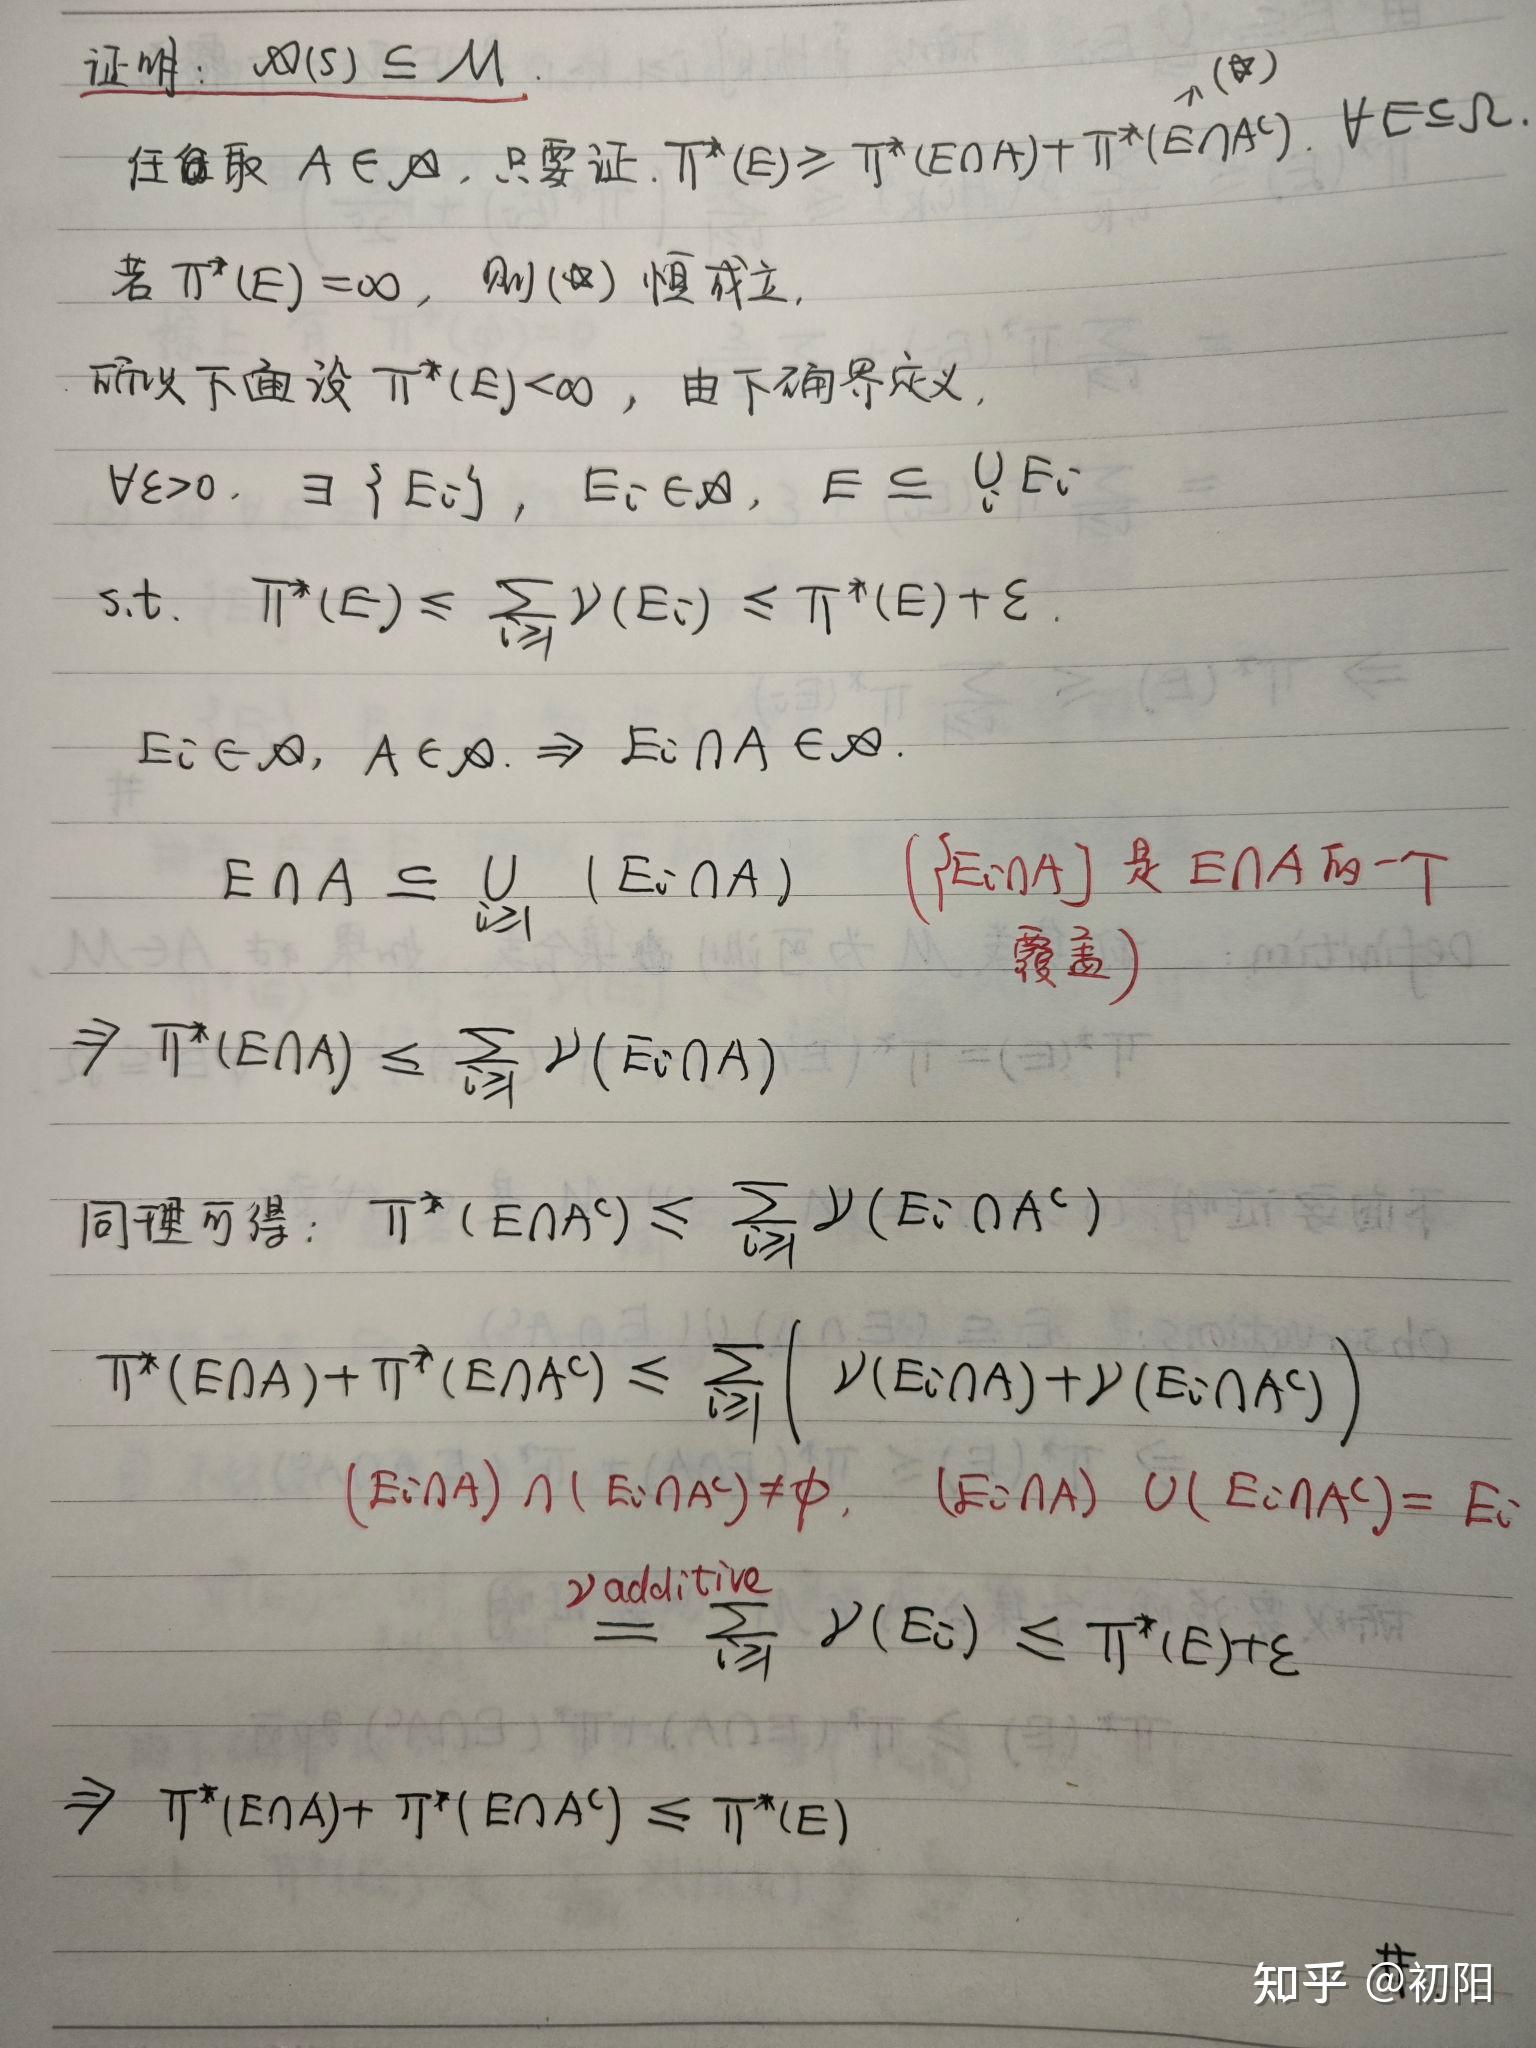 证明: 𝒜(S) ⊆ M.
任取 A ∈ 𝒜, 只要证. π*(E) ⩾ π*(E∩A) + π*(E∩Aᶜ). ∀E⊆Ω. ↗(☆)
若 π*(E) = ∞, 则(☆) 恒成立,
所以下面设 π*(E) < ∞, 由下确界定义,
∀ε>0. ∃ {Ei}, Ei ∈ 𝒜, E ⊆ ∪_i Ei
s.t. π*(E) ≤ ∑_{i≥1} ν(Ei) ≤ π*(E) + ε.
Ei ∈ 𝒜, A ∈ 𝒜. ⇒ Ei ∩ A ∈ 𝒜.
E ∩ A ⊆ ∪_{i≥1} (Ei ∩ A) ({Ei∩A} 是 E∩A 的一个
覆盖)
⇒ π*(E∩A) ≤ ∑_{i≥1} ν(Ei∩A)
同理可得: π*(E∩Aᶜ) ≤ ∑_{i≥1} ν(Ei∩Aᶜ)
π*(E∩A) + π*(E∩Aᶜ) ≤ ∑_{i≥1} ( ν(Ei∩A) + ν(Ei∩Aᶜ) )
(Ei∩A) ∩ (Ei∩Aᶜ) ≠ ϕ, (Ei∩A) ∪ (Ei∩Aᶜ) = Ei
ν additive
= ∑_{i≥1} ν(Ei) ≤ π*(E)+ε
⇒ π*(E∩A) + π*(E∩Aᶜ) ≤ π*(E)
#.
知乎 @初阳